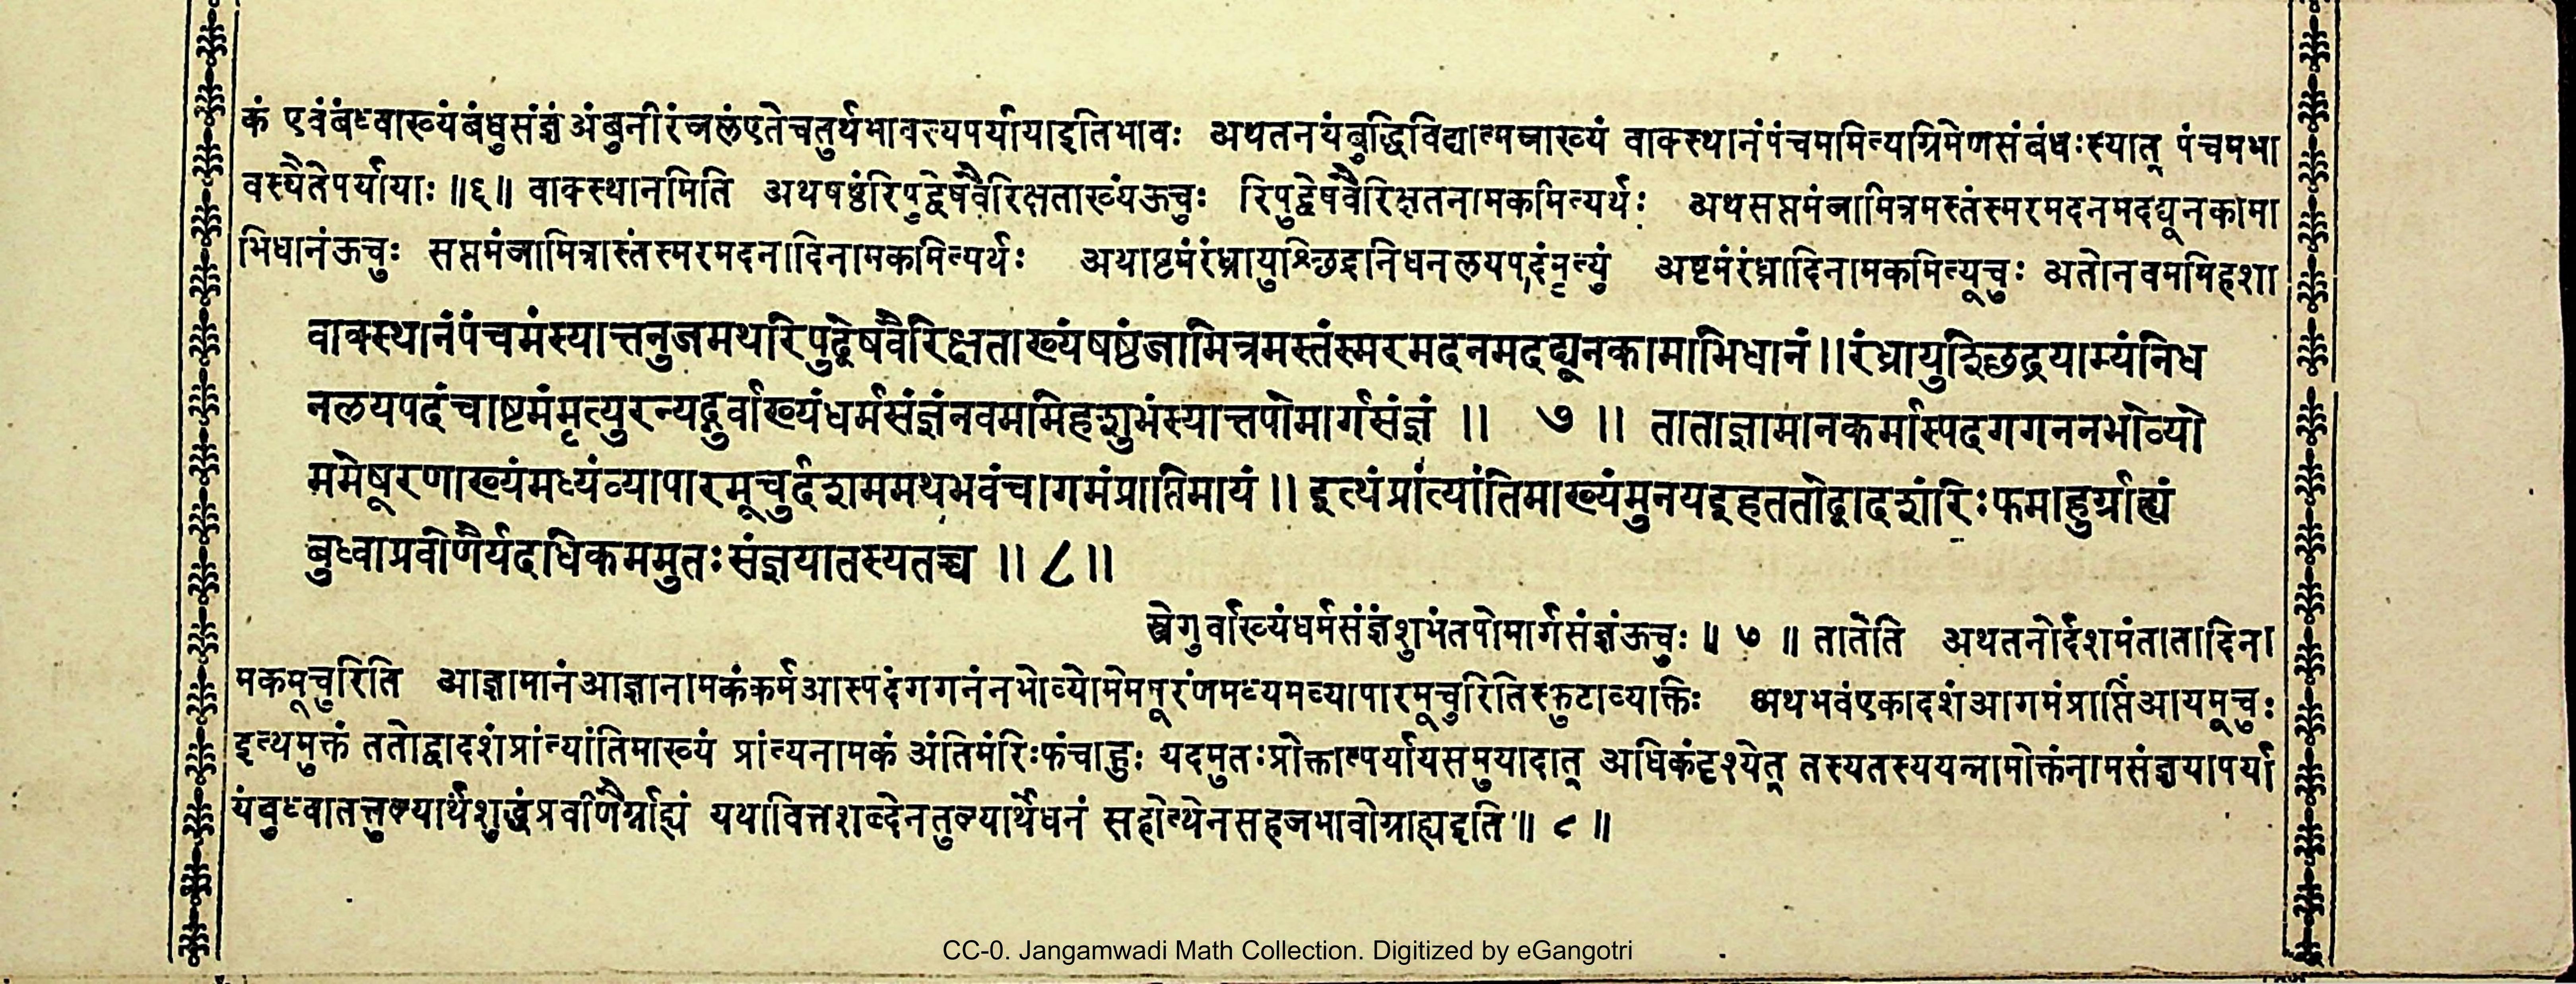 कं एवंबंध्वाख्यंबंधुसंज्ञं अंबुनीरंजलंएतेचतुर्थभावस्यपर्यायाइतिभावः अथतनयंबुद्धिविद्यात्मजाख्यं वाक्स्थानंपंचममित्यग्रिमेणसंबंधःस्यात् पंचमभा
वस्यैतेपर्यायाः ॥६॥ वाक्स्थानमिति अथषष्ठंरिपुद्वेषवैरिक्षताख्यंऊचुः रिपुद्वेषवैरिक्षतनामकमित्यर्थः अथसप्तमंजामित्रमस्तंस्मरमदनमदद्यूनकामा
भिधानंऊचुः सप्तमंजामित्रास्तंस्मरमदनादिनामकमित्यर्थः अथाष्टमंरंध्रायुश्छिद्रनिधनलयपदंमृत्युं अष्टमंरंध्रादिनामकमित्यूचुः अतोनवममिहशा
वाक्स्थानंपंचमंस्यात्तनुजमथरिपुद्वेषवैरिक्षताख्यंषष्ठंजामित्रमस्तंस्मरमदनमदद्यूनकामाभिधानं॥रंध्रायुश्छिद्रयाम्यंनिध
नलयपदंचाष्टमंमृत्युरन्यद्गुर्वाख्यंधर्मसंज्ञंनवममिहशुभंस्यात्तपोमार्गसंज्ञं ॥ ७ ॥ ताताज्ञामानकर्मास्पदगगननभोव्यो
ममेषूरणाख्यंमध्यंव्यापारमूचुर्दशममथभवंचागमंप्राप्तिमायं॥ इत्थंप्रांत्यांतिमाख्यंमुनयइहततोद्वादशंरिःफमाहुर्ग्राह्यं
बुध्वाप्रवीणैर्यदधिकममुतःसंज्ञयातस्यतच्च ॥ ८॥
स्त्रेगुर्वाख्यंधर्मसंज्ञंशुभंतपोमार्गसंज्ञंऊचुः ॥ ७ ॥ तातेति अथतनोर्दशमंतातादिना
मकमूचुरिति आज्ञामानंआज्ञानामकंकर्मआस्पदंगगनंनभोव्योमेमषूरंणमध्यमव्यापारमूचुरितिस्फुटाव्याक्तिः अथभवंएकादशंआगमंप्राप्तिंआयमूचुः
इत्थमुक्तं ततोद्वादशंप्रांत्यांतिमाख्यं प्रांत्यनामकं अंतिमंरिःफंचाहुः यदमुतःप्रोक्तात्पर्यायसमुयादात् अधिकंदृश्येत् तस्यतस्ययन्नामोक्तंनामसंज्ञयापर्या
यंबुध्वातत्तुल्यार्थशुद्धंप्रवीणैर्ग्राह्यं यथावित्तशब्देनतुल्यार्थेधनं सहोत्थेनसहजभावोग्राह्यइति ॥ ८ ॥
CC-0. Jangamwadi Math Collection. Digitized by eGangotri